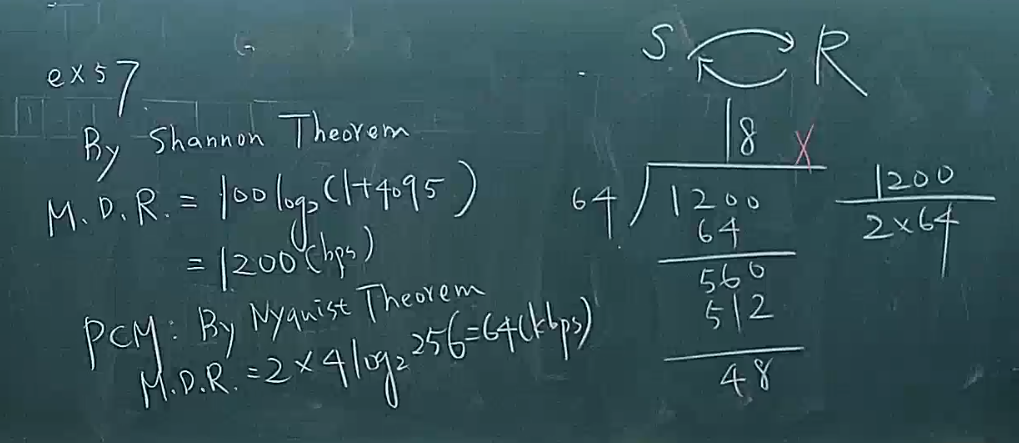 ex57
By Shannon Theorem
M.D.R. = 100 log₂(1+4095)
= 1200 (bps)
PCM: By Nyquist Theorem
M.D.R. = 2×4 log₂ 256 = 64 (kbps)
S R
18 X
64 1200
64
560
512
48
1200
2×64